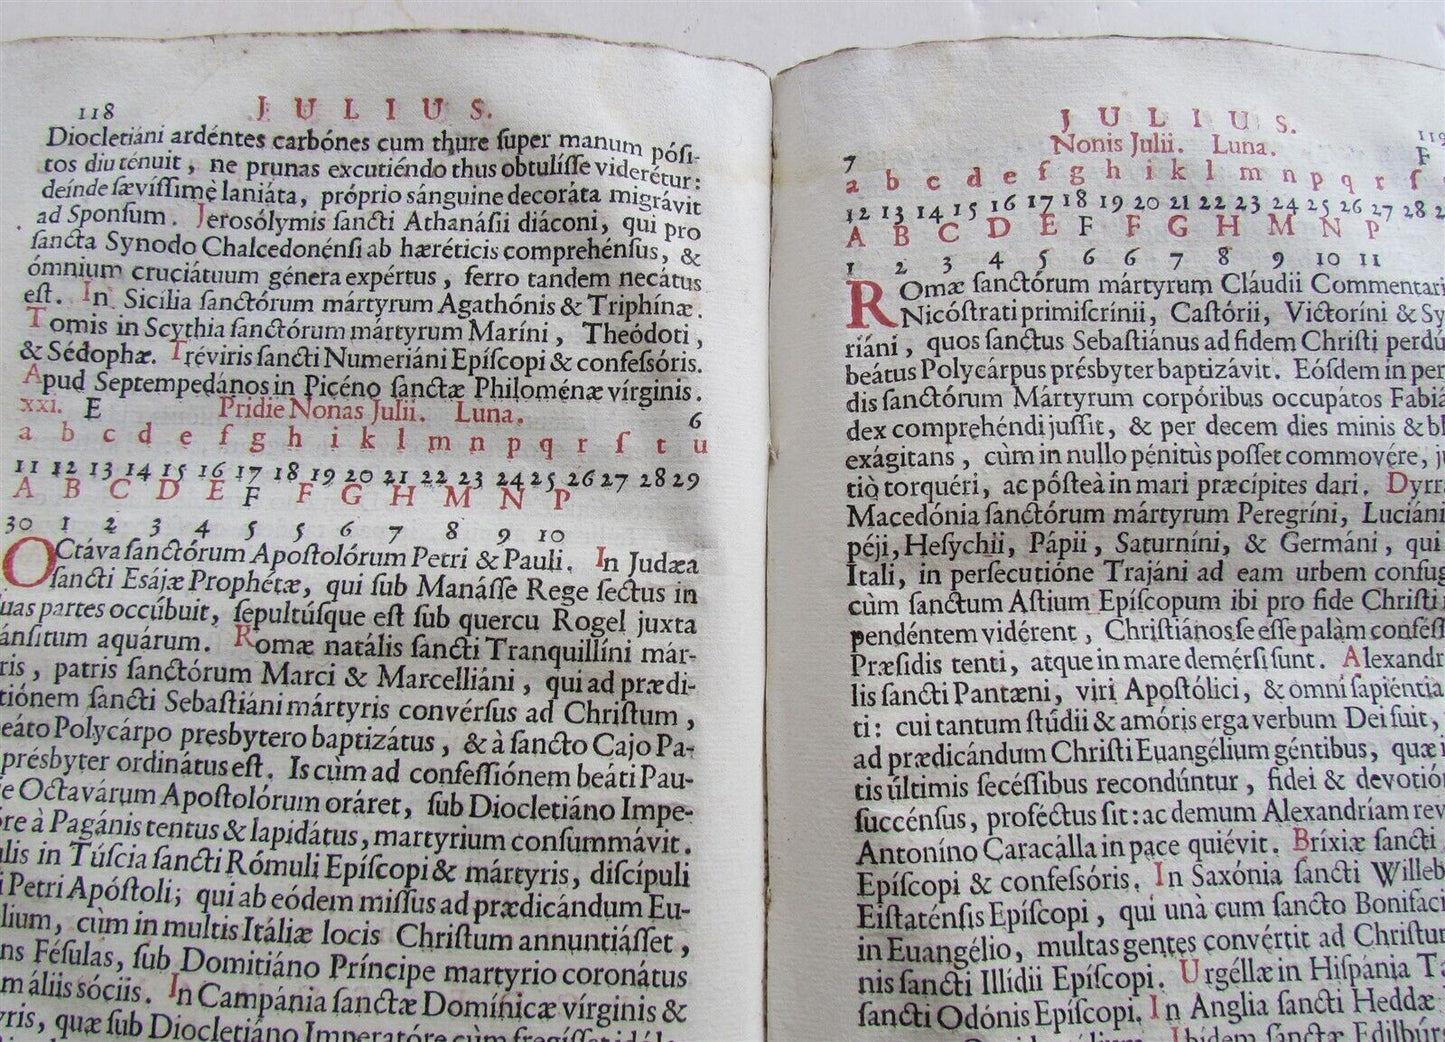 118 JULIUS.
Diocletiáni ardéntes carbónes cum thure ſuper manum póſi-
tos diu ténuit, ne prunas excutiéndo thus obtulíſſe viderétur:
deínde ſævíſſimè laniáta, próprio sánguine decoráta migrávit
ad Sponſum. Jeroſólymis ſancti Athanáſii diáconi, qui pro
ſancta Synodo Chalcedonénſi ab hæréticis comprehénſus, &
ómnium cruciátuum génera expértus, ferro tandem necátus
eſt. In Sicilia ſanctórum mártyrum Agathónis & Triphínæ.
Tomis in Scythia ſanctórum mártyrum Maríni, Theódoti,
& Sédophæ. Tréviris ſancti Numeriáni Epíſcopi & confeſsóris.
Apud Septempedános in Picéno ſanctæ Philoménæ vírginis.
xxi. E Pridie Nonas Julii. Luna. 6
a b c d e f g h i k l m n p q r ſ t u
11 12 13 14 15 16 17 18 19 20 21 22 23 24 25 26 27 28 29
A B C D E F F G H M N P
30 1 2 3 4 5 5 6 7 8 9 10
OCtáva ſanctórum Apoſtolórum Petri & Pauli. In Judæa
ſancti Eſájæ Prophétæ, qui ſub Manáſſe Rege ſectus in
uas partes occúbuit, ſepultúſque eſt ſub quercu Rogel juxta
ánſitum aquárum. Romæ natális ſancti Tranquillíni már-
ris, patris ſanctórum Marci & Marcelliáni, qui ad prædi-
tiónem ſancti Sebaſtiáni mártyris convérſus ad Chriſtum,
eáto Polycárpo presbytero baptizátus, & à ſancto Cajo Pa-
présbyter ordinátus eſt. Is cùm ad confeſſiónem beáti Pau-
e Octavárum Apoſtolórum oráret, ſub Diocletiáno Impe-
óre à Pagánis tentus & lapidátus, martyrium conſummávit.
ulis in Túſcia ſancti Rómuli Epíſcopi & mártyris, diſcípuli
i Petri Apóſtoli; qui ab eódem miſſus ad prædicándum Eu-
lium, cùm in multis Itáliæ locis Chriſtum annuntiáſſet,
ns Féſulas, ſub Domitiáno Príncipe martyrio coronátus
m áliis sóciis. In Campánia ſanctæ Domínicæ vírginis &
yris, quæ ſub Diocletiáno Imperatóre cùm fregíſſet idóla,
JULIUS. 119
7 Nonis Julii. Luna. F
a b c d e f g h i k l m n p q r ſ
12 13 14 15 16 17 18 19 20 21 22 23 24 25 26 27 28 2
A B C D E F F G H M N P
1 2 3 4 5 6 6 7 8 9 10 11
ROmæ ſanctórum mártyrum Cláudii Commentari
Nicóſtrati primiſcrínii, Caſtórii, Victoríni & Sy
riáni, quos ſanctus Sebaſtiánus ad fidem Chriſti perdú
beátus Polycárpus présbyter baptizávit. Eóſdem in per
dis ſanctórum Mártyrum corpóribus occupátos Fabiá
dex comprehéndi juſſit, & per decem dies minis & bl
exágitans, cùm in nullo pénitùs poſſet commovére, ju
tiò torquéri, ac póſteà in mari præcípites dari. Dyrr
Macedónia ſanctórum mártyrum Peregríni, Luciáni
péji, Heſychii, Pápii, Saturníni, & Germáni, qui
Itali, in perſecutióne Trajáni ad eam urbem confug
cùm ſanctum Aſtium Epíſcopum ibi pro fide Chriſti
pendéntem vidérent, Chriſtiános ſe eſſe palàm conféſſ
Præſidis tenti, atque in mare demérſi ſunt. Alexandr
lis ſancti Pantæni, viri Apoſtólici, & omni ſapiéntia
ti: cui tantum ſtúdii & amóris erga verbum Dei fuit,
ad prædicándum Chriſti Euangélium géntibus, quæ i
tis últimis ſecéſſibus recondúntur, fidei & devotió
ſuccénſus, proféctus ſit: ac demum Alexandríam rev
Antoníno Caracálla in pace quiévit. Bríxiæ ſancti
Epíſcopi & confeſsóris. In Saxónia ſancti Willeb
Eiſtaténſis Epíſcopi, qui unà cum ſancto Bonifaci
in Euangélio, multas gentes convértit ad Chriſtum
nis ſancti Illídii Epíſcopi. Urgéllæ in Hiſpánia Ta
ſancti Odónis Epíſcopi. In Anglia ſancti Heddæ
Ibídem ſanctæ Edilbúr